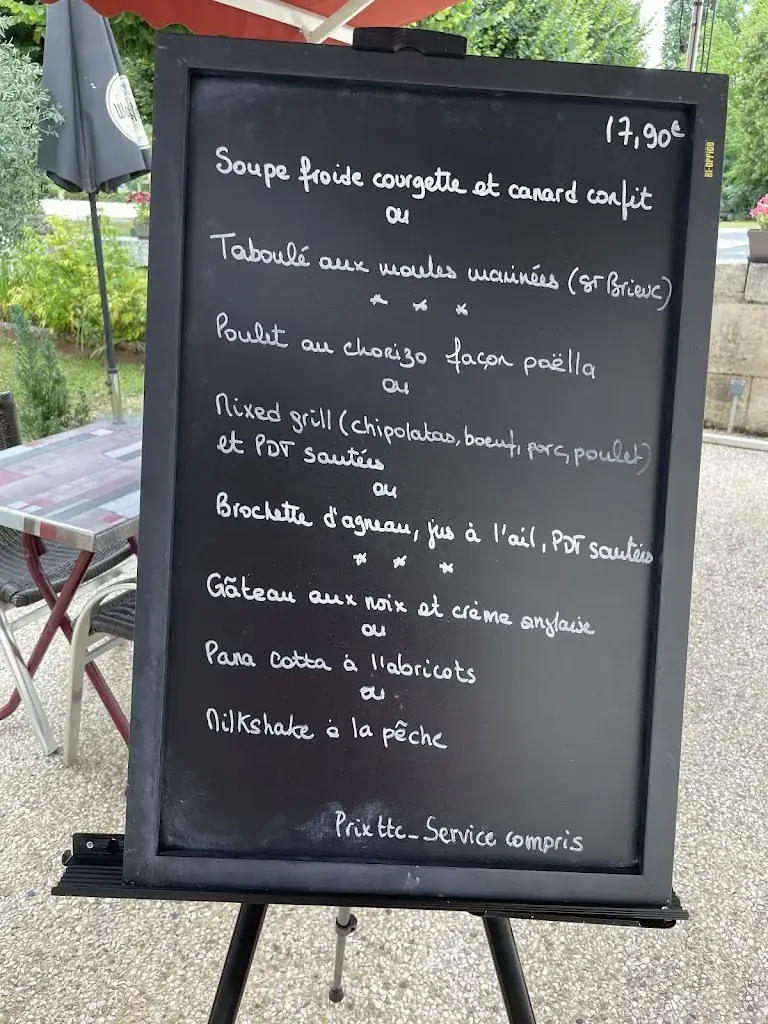 17,90€
BI-OFFICE
Soupe froide courgette et canard confit
ou
Taboulé aux moules marinées (ST Brieuc)
* * *
Poulet au chorizo façon paëlla
ou
Mixed grill (chipolatas, boeuf, porc, poulet)
et PDT sautées
ou
Brochette d'agneau, jus à l'ail, PDT sautées
* * *
Gâteau aux noix et crème anglaise
ou
Pana cotta à l'abricots
ou
Milkshake à la pêche
Prix ttc_ Service compris